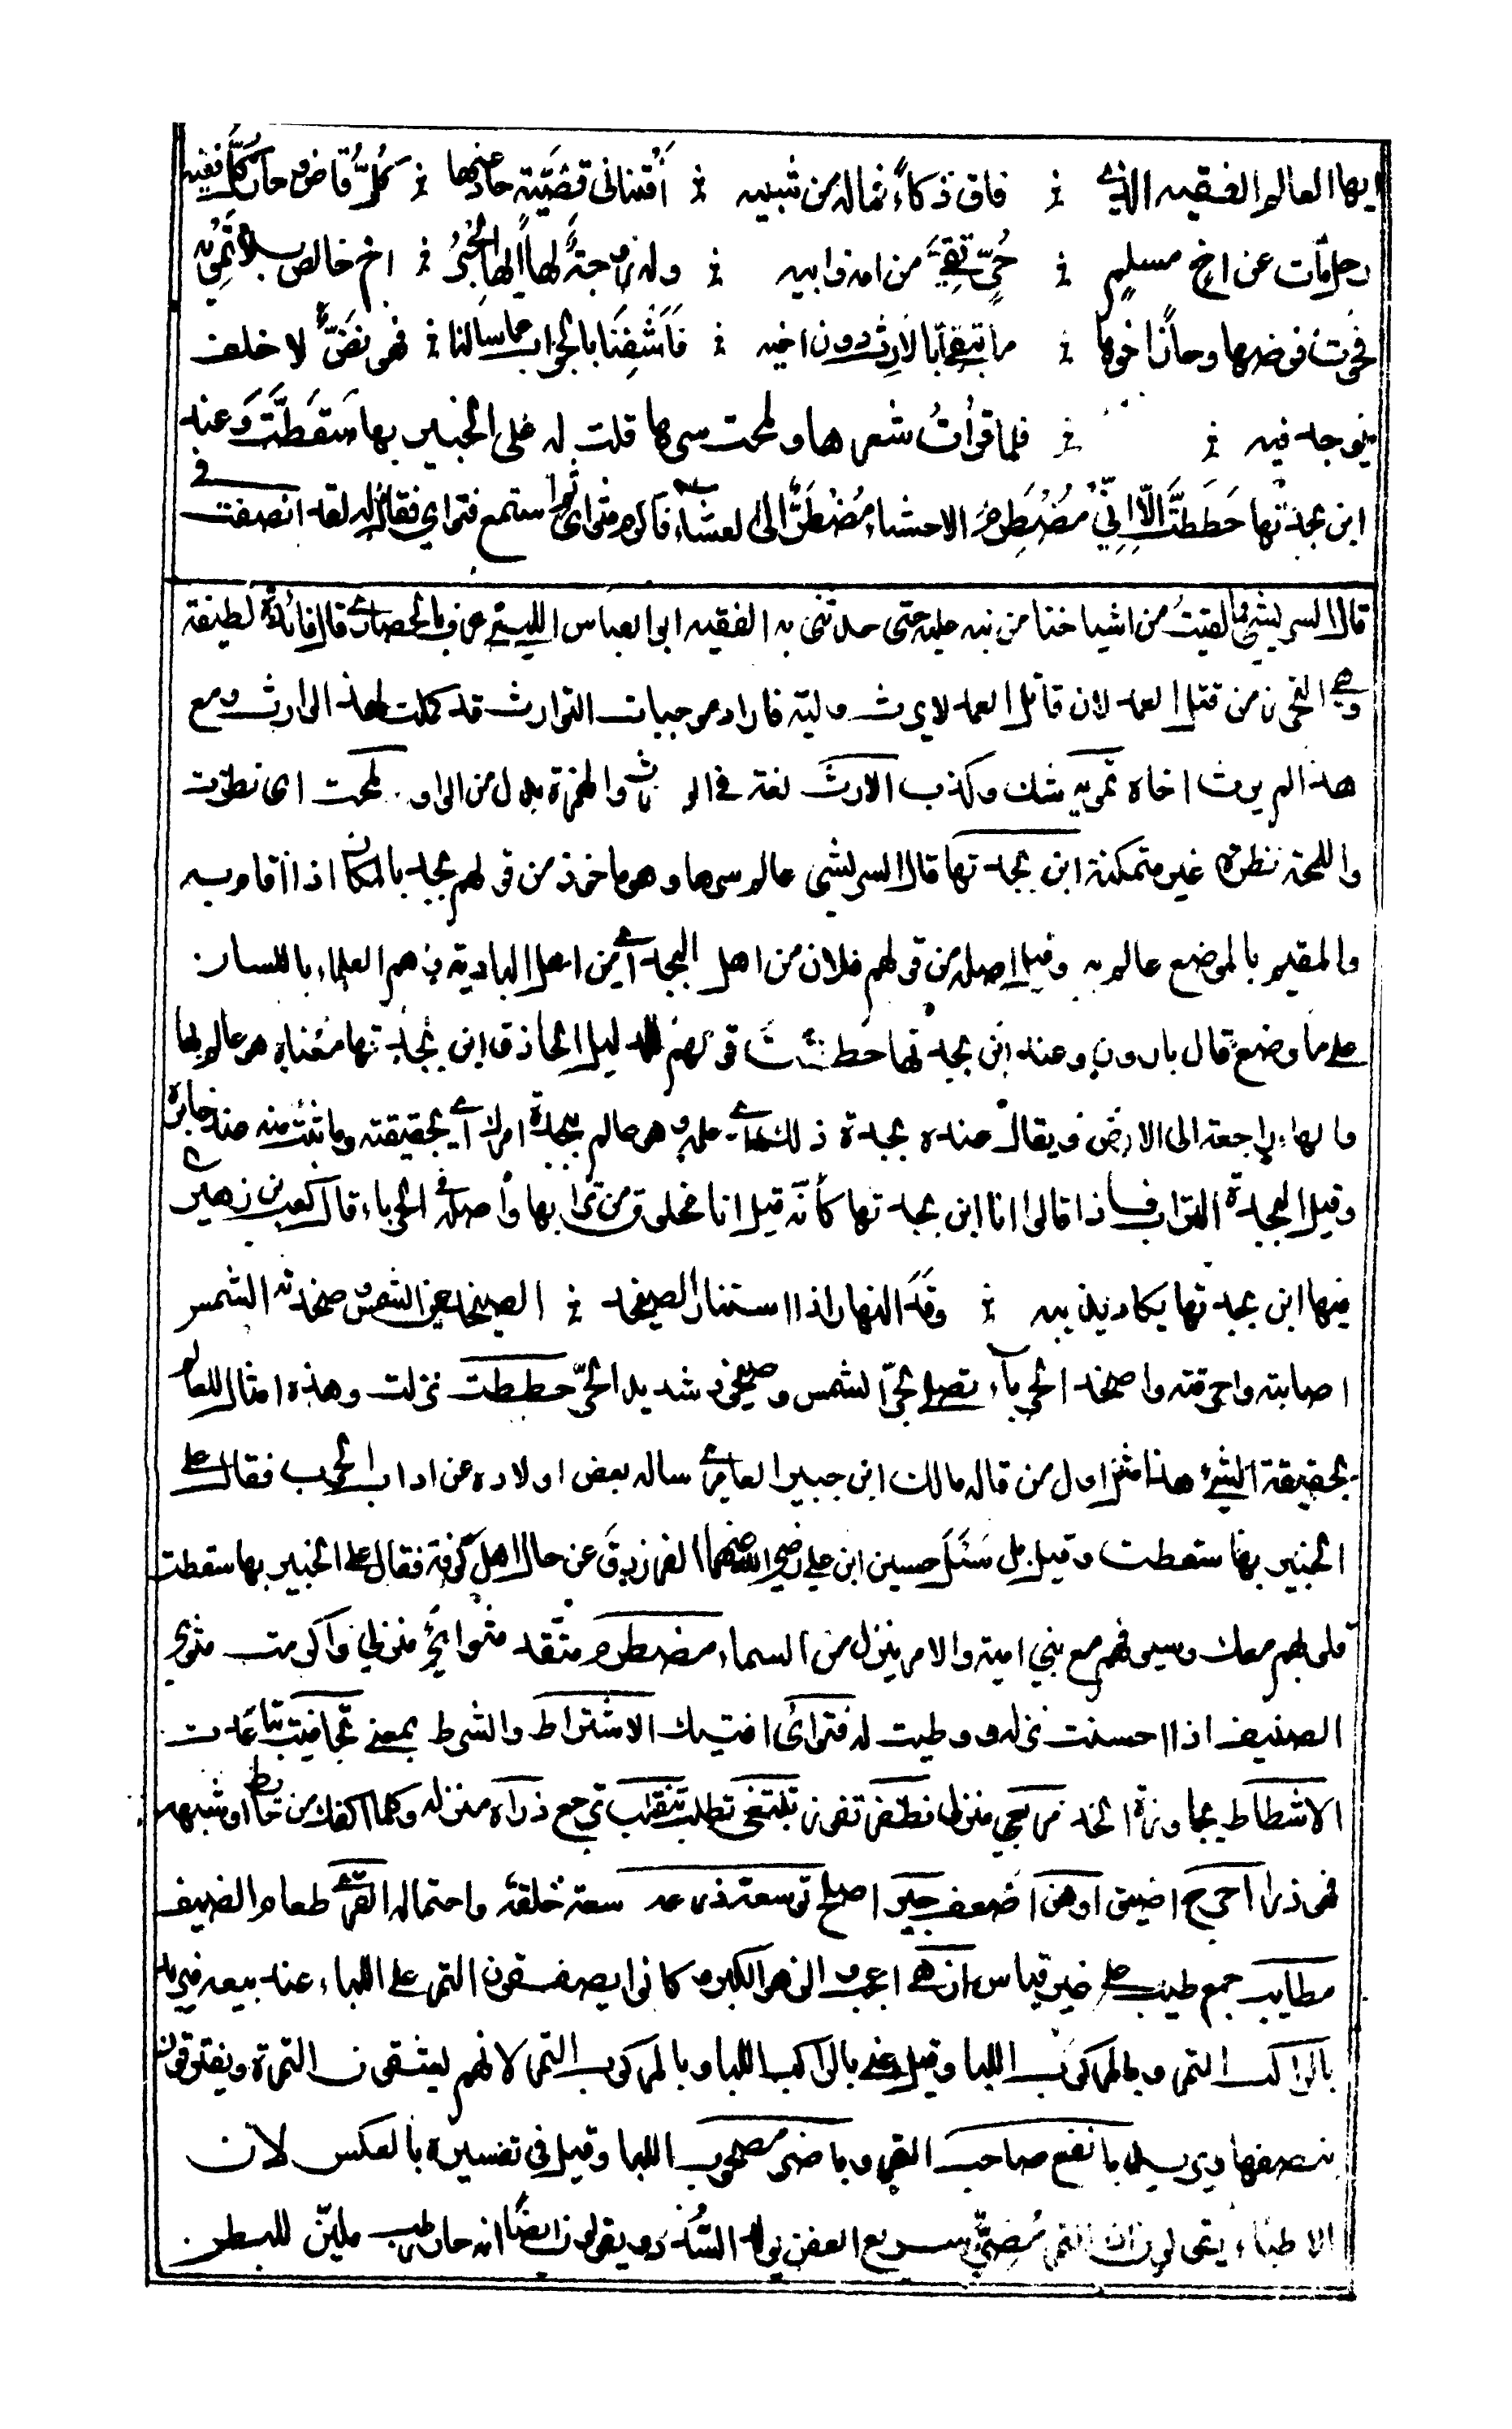 ايها العالم الفقيه الذي ؞ فاق ذكاءً فماله من شبيه ؞ أَفْتنافي قضيّة حاد عنها ؞ كُلُّ قاض وحار كلُّ فقيه
رجل مات عن اخ مسلم ؞ حُرٍّ تقيٍّ من امه وابيه ؞ وله زوجةٌ لها ايها الحِبْرُ ؞ اخ خالص بلا تَمْوِيْه
فحوت فرضها وحاز اخوها ؞ ما تبقى بالارث دون اخيه ؞ فَاَشْفِنَا بالجواب عما سالنا ؞ فهو نصٌّ لا خلف
يوجد فيه ؞ ؞ فلما قرأتُ شعرها ولمحت سرها قلت له على الخبير بها سَقَطْتَ وَعند
ابن بجدتها حَطَطْتَ اِلّا اِنِّيْ مُضْطَرِمُ الاحشاء مُضْطَرٌّ الى العشاء فاكرم مثواي ثم استمع فتواي فقال لقد انصفت في
قال الشريشي ما لقيتُ من اشياخنا من نبه عليه حتى حدثني به الفقيه ابو العباس عرف بالحصار قال فائدة لطيفة
وهي التحرز من قتل العمد لان قاتل العمد لا يرث وليه فاراد موجبات التوارث قد كملت لهذا الوارث ومع
هذا لم يرث اخاه تمويه شك وكذب الارث لغة في الورث والهمزة بدل من الواو لمحت اى نظرت
واللمحة نظرة غير متمكنة ابن بجدتها قال الشريشي عالم سرها وهو ماخوذ من قولهم بجد بالمكان اذا اقام به
والمقيم بالموضع عالم به وقيل اصله من قولهم فلان من اهل البجدة أي من اهل البادية وهم العلماء باللسان
على ما وضع قال بارون وعند ابن بجدتها حططت قولهم للدليل الحاذق ابن بجدتها معناه هو عالم بها
والهاء راجعة الى الارض ويقال عنده بجدة ذلك اي علمه وهو عالم ببجدة امرك أي بحقيقته وما
وقيل البجدة التراب فاذا قالوا انا ابن بجدتها كأنّه قيل انا مخلوق من ترابها وأصله في الحرباء قال كعب بن زهير
فيها ابن بجدتها يكاد يذيبه ؞ وقدَ النهار اذا استنار الصيخد ؞ الصيخد عين الشمس صخدته الشمس
اصابته واحرقته واصخد الحرباء تصلى بحرّ الشمس وصيخود شديد الحرّ حططت نزلت وهذه امثال للعالم
بحقيقة الشئ هذا مثل اول من قاله مالك ابن جبير العامري ساله بعض اولاده عن اداب الحرب فقال على
الخبير بها سقطت وقيل بل سَئَلَ حسين ابن علي رضي الله عنهما الفرزدق عن حال اهل كوفة فقال على الخبير بها سقطت
قلوبهم معك وسيوفهم مع بني امية والامر ينزل من السماء مضطرم متّقد مثواي منزلي واكرمت مثوي
الضيف اذا احسنت نزله ووطيت له فتواى افتيك الاشتراط والشرط بمعنى تجافيت تباعدت
الاشطاط مجاوزة الحد مربعي منزلي تظفر تفوز تبتغى تطلب تنقلب ترجع ذراه منزله وكلما اكفك من حائط او شبهه
فهو ذرا احرج اضيق اوهن اضعف جير اصلح توسعة ذرعه سعة خلقه واحتماله القرى طعام الضيف
مطايب جمع طيب على غير قياس ازهى اعجب الزهو الكبر وكانوا يصفقون التمر على اللباء عند بيعه فيريد
بالراكب التمر وبالمركوب اللبا وقيل يعني بالراكب اللبا وبالمركوب التمر لانهم يشقون التمرة ويفترقون
بنصفها ويريد بانفع صاحب التمر وباضر مصحوب اللبا وقيل في تفسيره بالعكس لان
الاطباء يقولون ان التمر مُضِرٌّ سريع العفن يولد السُّدَد ويقولون ايضًا انه حار رطب مليّن للبطن